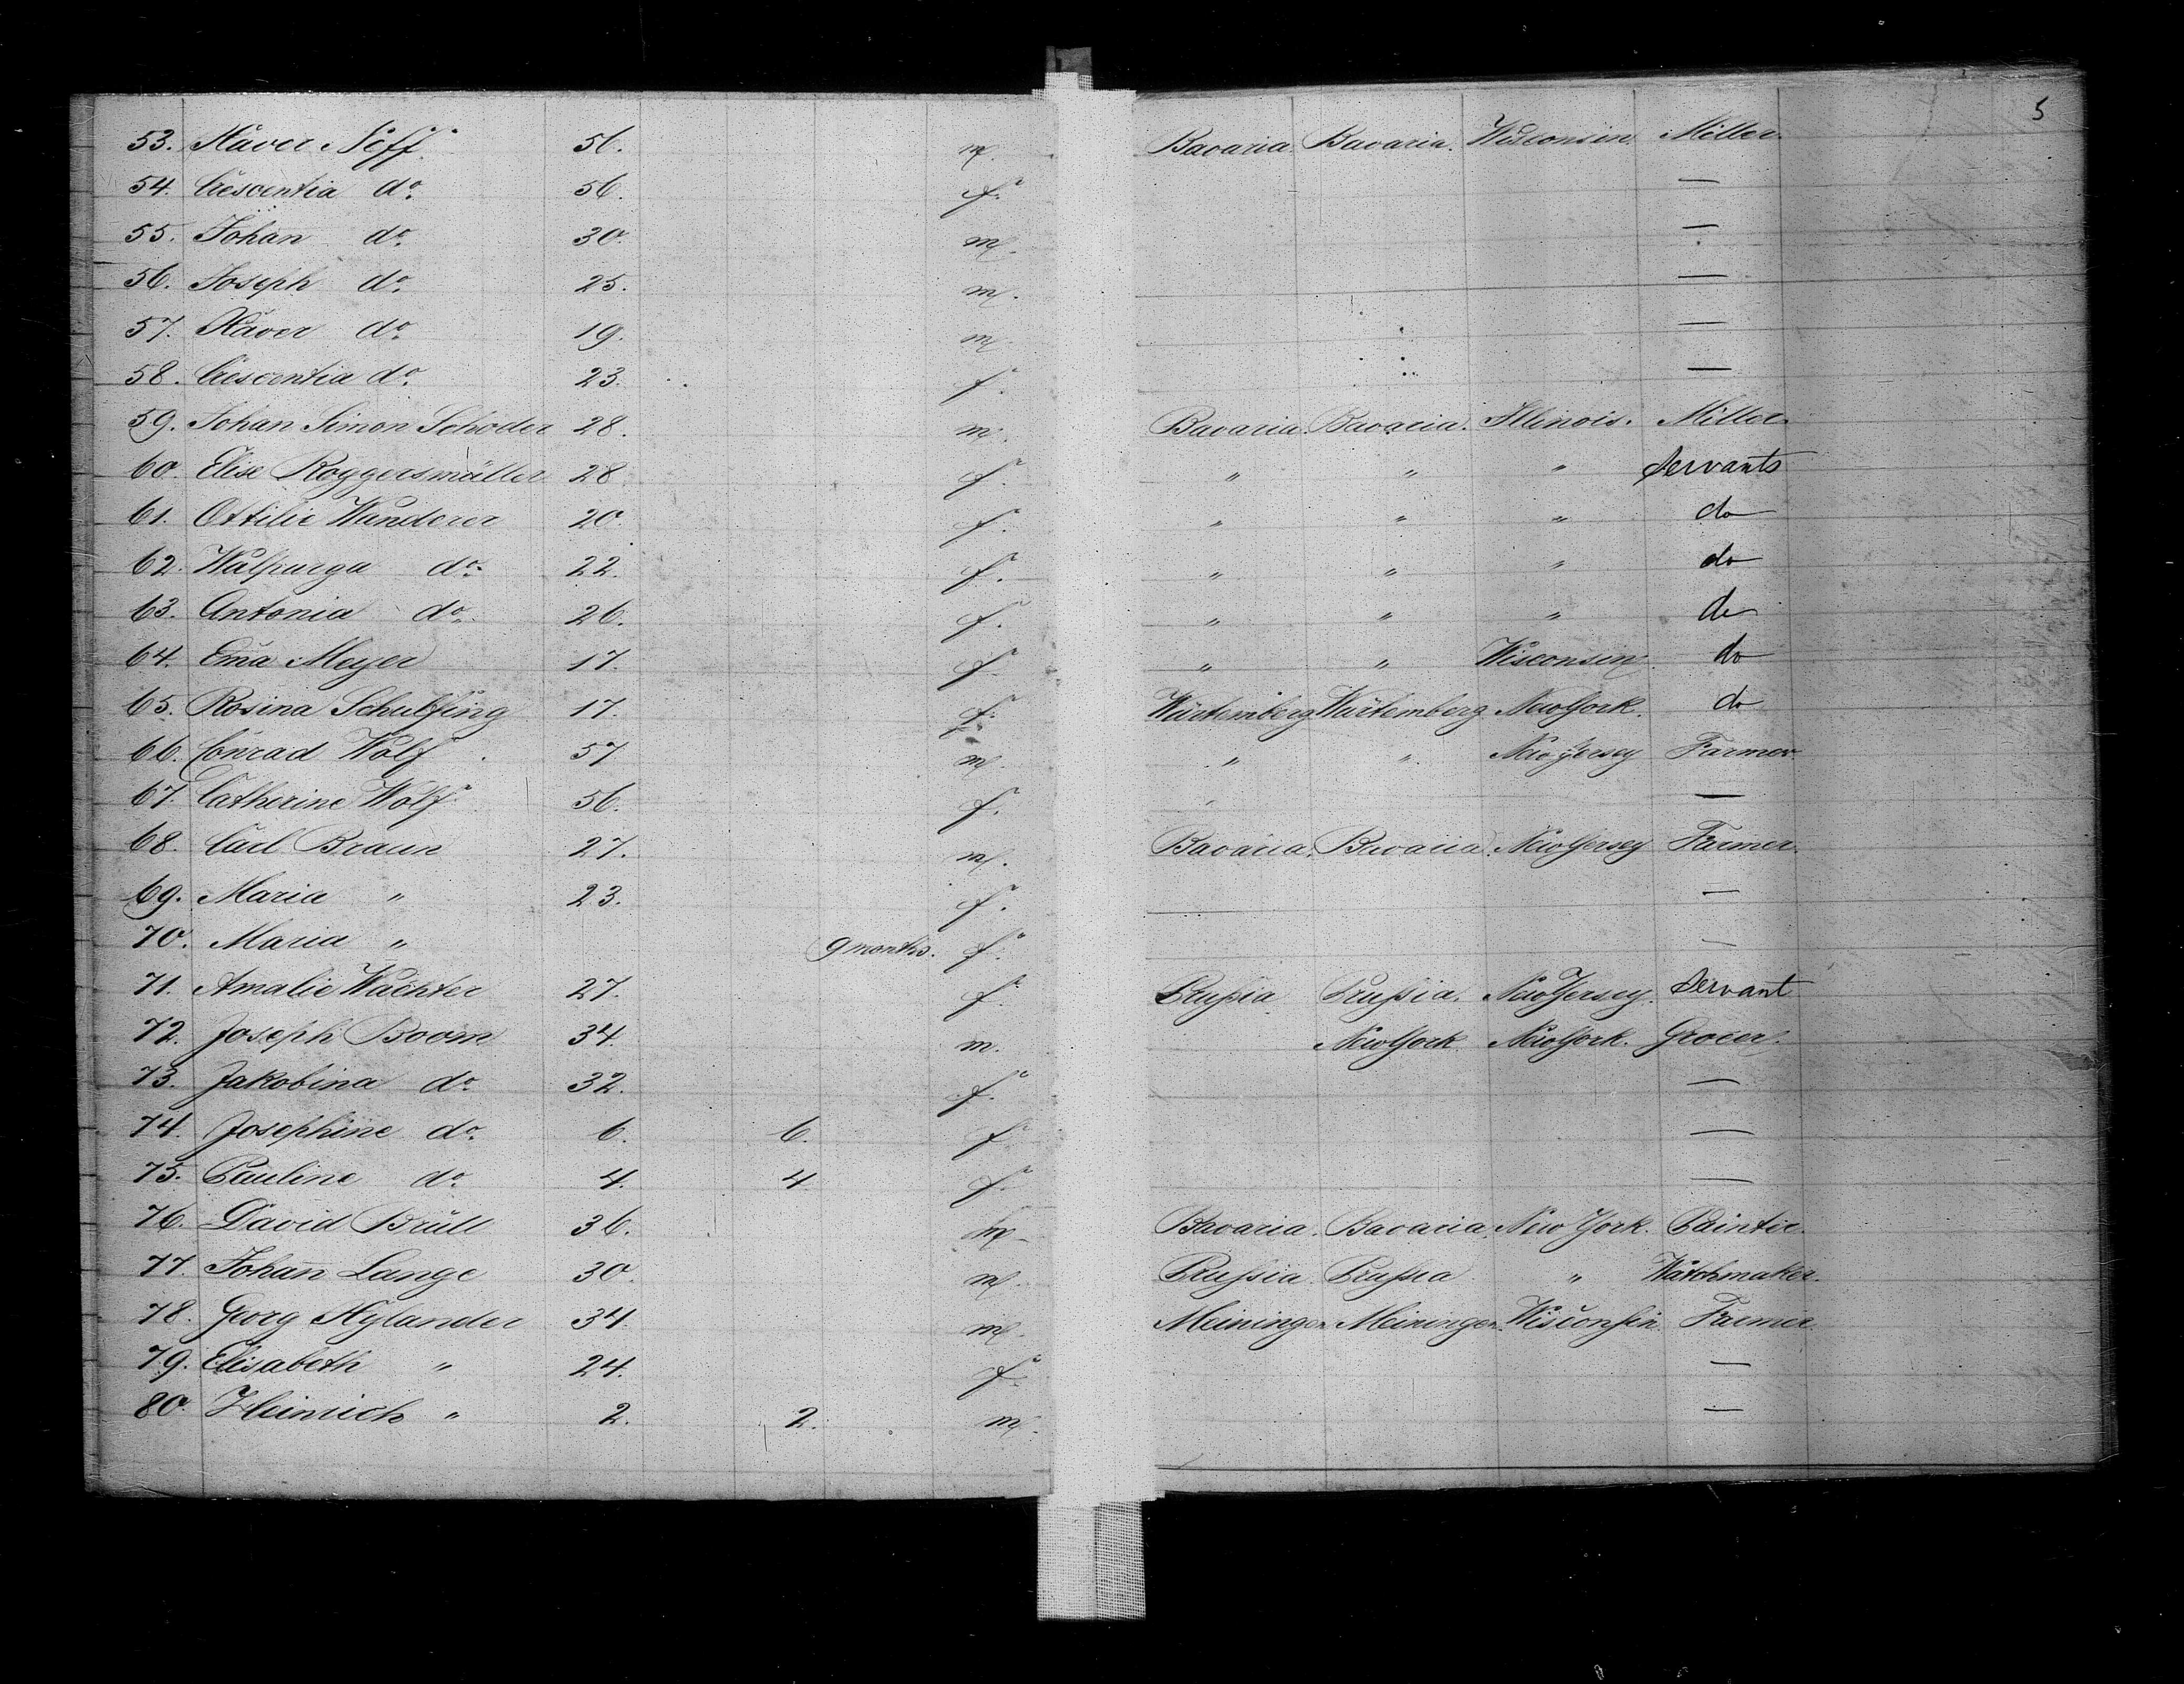 5
53. Xaver Neff. 56. m. Bavaria. Bavaria. Wisconsin. Miller.
54. Crescentia do. 56. f. —
55. Johan do. 30. m. —
56. Joseph do. 25. m. —
57. Xaver do. 19. m. —
58. Crescentia do. 23. f. —
59. Johan Simon Schöder 28. m. Bavaria. Bavaria. Illinois. Miller.
60. Elise Roggersmüller 28 f. " " " Servants
61. Ottilie Wanderer 20. f. " " " do
62. Walpurga do. 22. f. " " " do
63. Antonia do. 26. f. " " " do
64. Em̄a Meyer 17. f. " " Wisconsin do
65. Rosina 17. f. Würtemberg Würtemberg New York. do
66. Conrad Wolf 57 m. " " New Jersey Farmer.
67. Catherine Wolf 56. f. —
68. Carl Braun 27. m. Bavaria. Bavaria. New Jersey Farmer.
69. Maria " 23. f. —
70. Maria " 9 months. f. —
71. Amalie Wachter 27. f. Prußia Prußia. New Jersey. Servant
72. Joseph Boom 34. m. New York New York. Grocer.
73. Jakobina do. 32. f. —
74. Josephine do. 6. 6. f. —
75. Pauline do. 4. 4 f. —
76. David Brüll 36. m. Bavaria. Bavaria. New York. Painter.
77. Johan Lange 30. m. Prußia. Prußia " Watchmaker.
78. Georg Hylander 34 m. Meiningen Meiningen. Wisconsin. Farmer.
79. Elisabeth " 24. f. —
80. Heinrich " 2. 2. m. —